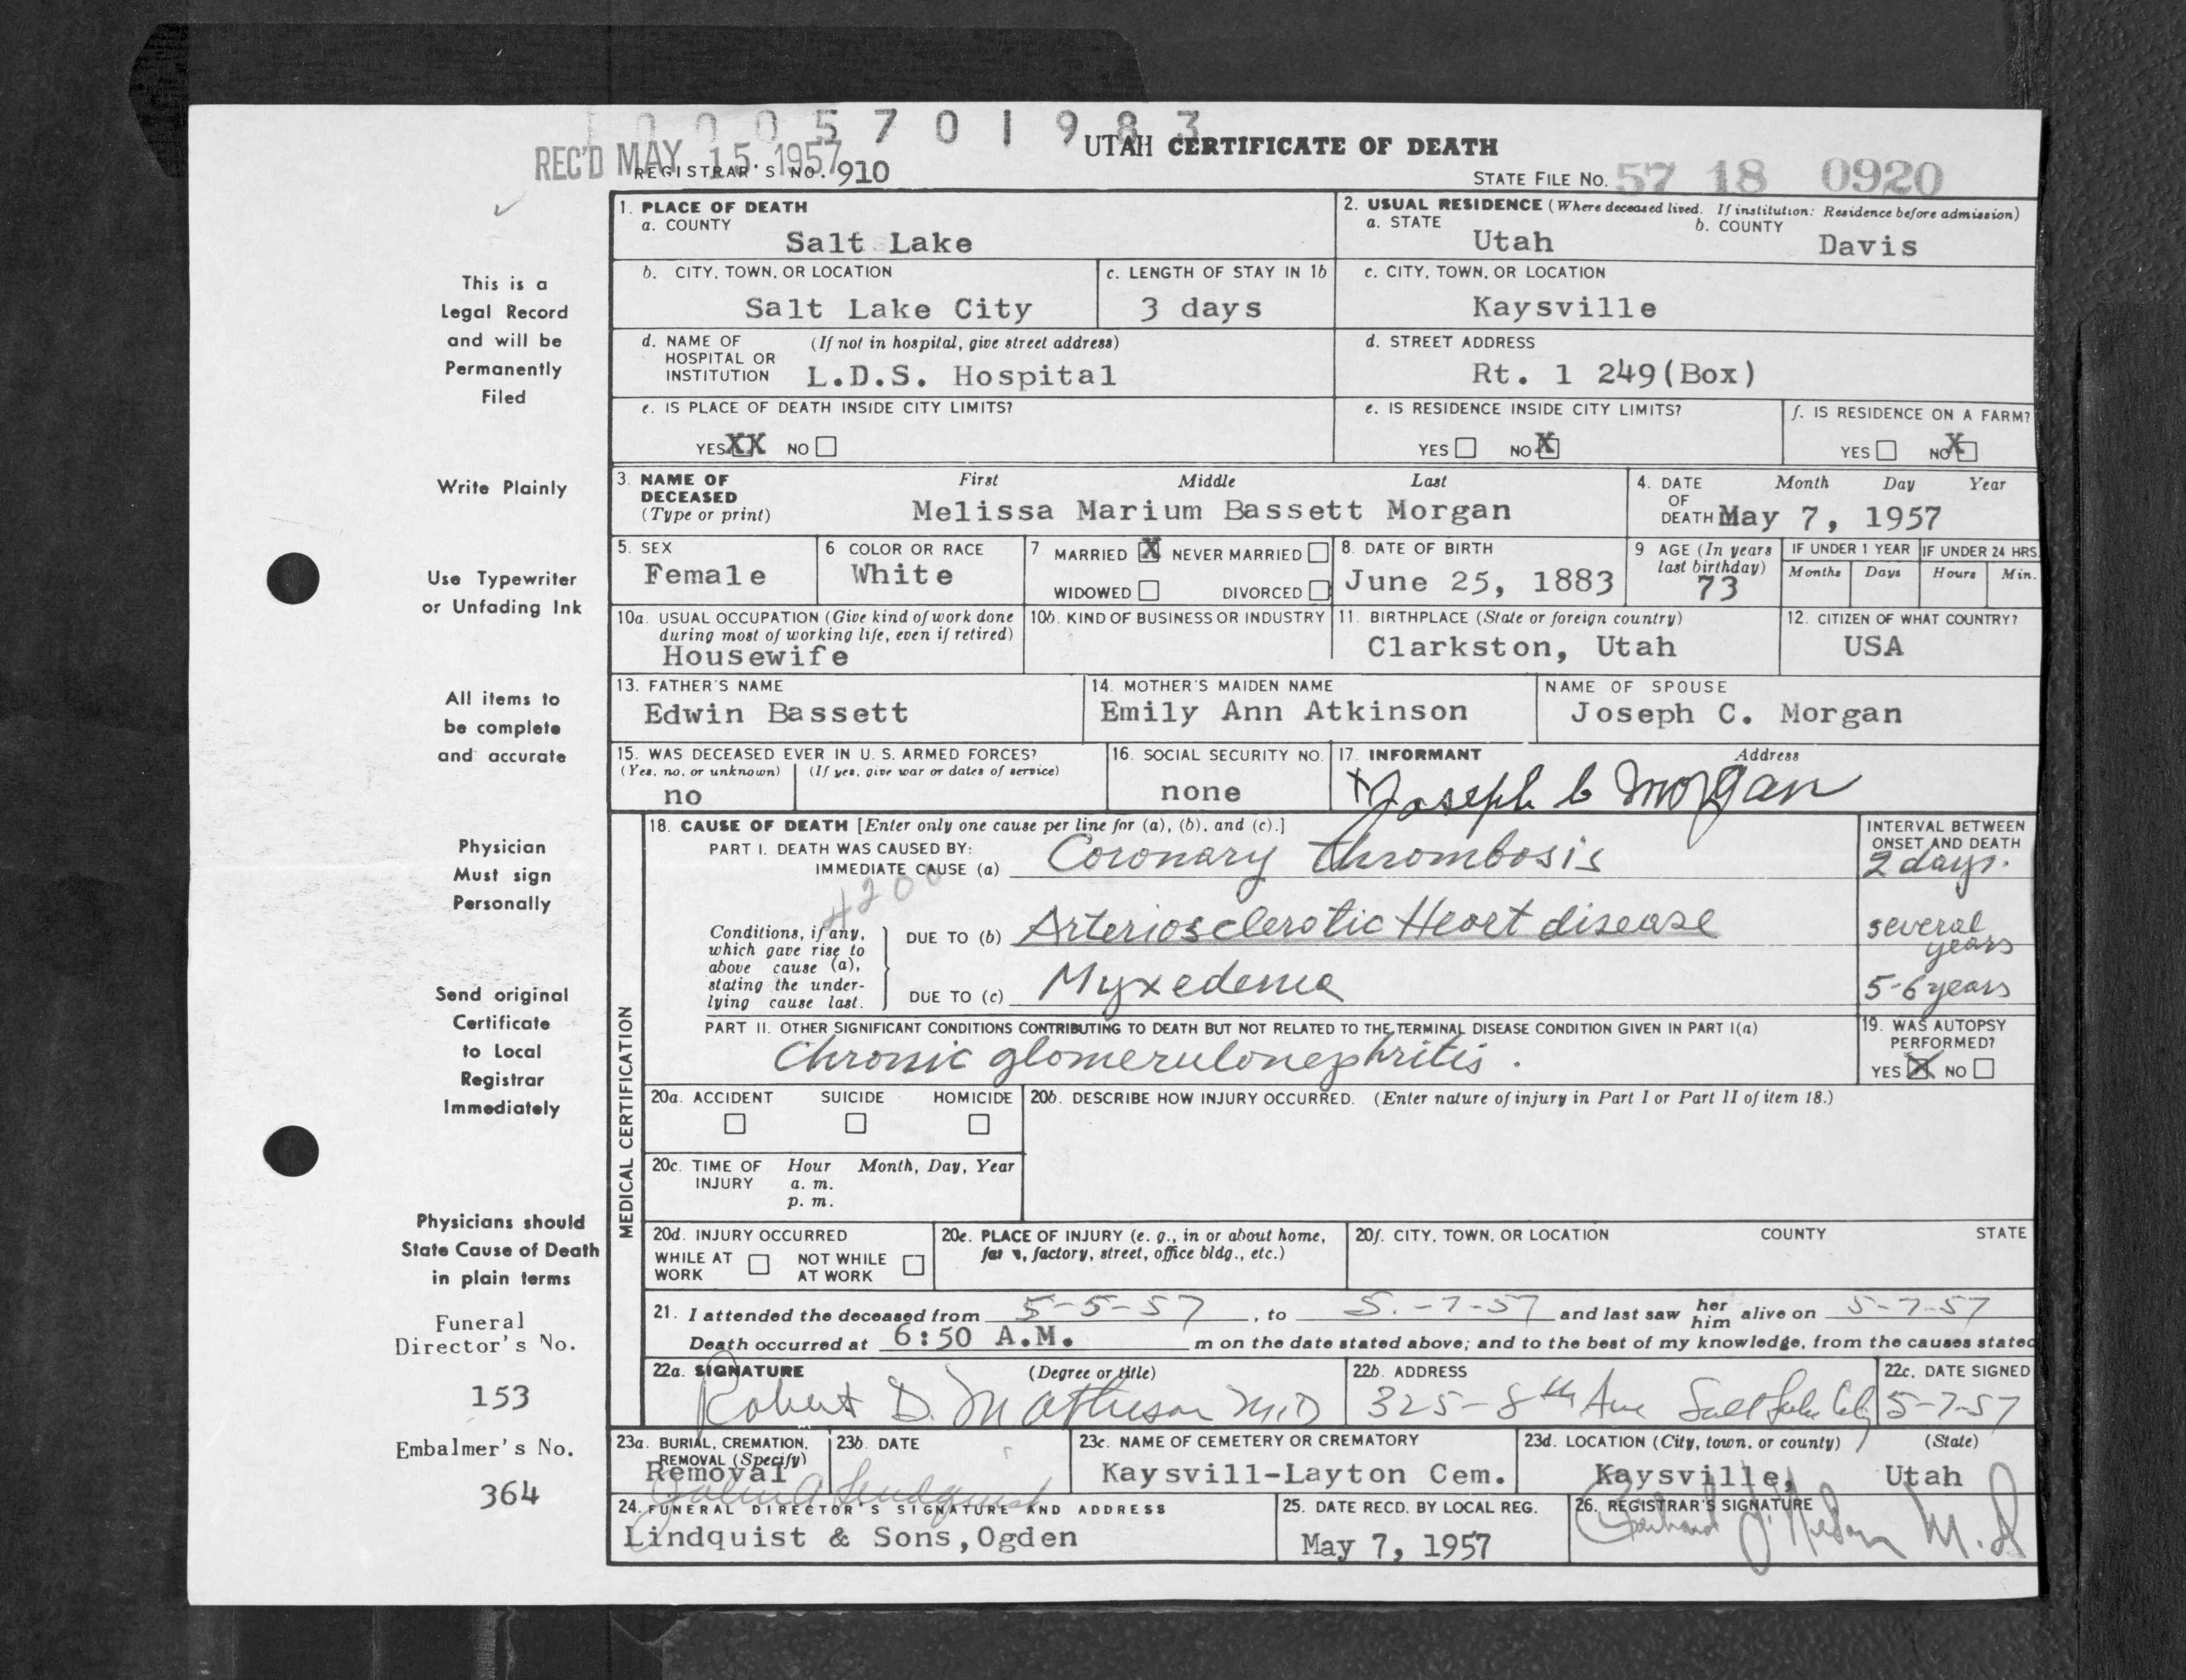 1 0 0 0 5 7 0 1 9 8 3
REC'D MAY 15 1957
UTAH CERTIFICATE OF DEATH
REGISTRAR'S NO. 910
STATE FILE NO. 57 18 0920
This is a
Legal Record
and will be
Permanently
Filed
Write Plainly
Use Typewriter
or Unfading Ink
All items to
be complete
and accurate
Physician
Must sign
Personally
Send original
Certificate
to Local
Registrar
Immediately
Physicians should
State Cause of Death
in plain terms
Funeral
Director's No.
153
Embalmer's No.
364
1. PLACE OF DEATH
a. COUNTY
Salt Lake
2. USUAL RESIDENCE (Where deceased lived. If institution: Residence before admission)
a. STATE Utah b. COUNTY Davis
b. CITY, TOWN, OR LOCATION
Salt Lake City
c. LENGTH OF STAY IN 1b
3 days
c. CITY, TOWN, OR LOCATION
Kaysville
d. NAME OF (If not in hospital, give street address)
HOSPITAL OR
INSTITUTION L.D.S. Hospital
d. STREET ADDRESS
Rt. 1 249(Box)
e. IS PLACE OF DEATH INSIDE CITY LIMITS?
YES XX NO
e. IS RESIDENCE INSIDE CITY LIMITS?
YES NO X
f. IS RESIDENCE ON A FARM?
YES NO X
3. NAME OF First Middle Last
DECEASED
(Type or print) Melissa Marium Bassett Morgan
4. DATE Month Day Year
OF
DEATH May 7, 1957
5. SEX
Female
6 COLOR OR RACE
White
7 MARRIED X NEVER MARRIED
WIDOWED DIVORCED
8. DATE OF BIRTH
June 25, 1883
9 AGE (In years
last birthday)
73
IF UNDER 1 YEAR IF UNDER 24 HRS.
Months Days Hours Min.
10a. USUAL OCCUPATION (Give kind of work done
during most of working life, even if retired)
Housewife
10b. KIND OF BUSINESS OR INDUSTRY
11. BIRTHPLACE (State or foreign country)
Clarkston, Utah
12. CITIZEN OF WHAT COUNTRY?
USA
13. FATHER'S NAME
Edwin Bassett
14. MOTHER'S MAIDEN NAME
Emily Ann Atkinson
NAME OF SPOUSE
Joseph C. Morgan
15. WAS DECEASED EVER IN U. S. ARMED FORCES?
(Yes, no, or unknown) (If yes, give war or dates of service)
no
16. SOCIAL SECURITY NO.
none
17. INFORMANT Address
x Joseph C Morgan
MEDICAL CERTIFICATION
18. CAUSE OF DEATH [Enter only one cause per line for (a), (b), and (c).]
PART I. DEATH WAS CAUSED BY:
IMMEDIATE CAUSE (a) Coronary thrombosis
4200
INTERVAL BETWEEN
ONSET AND DEATH
2 days.
Conditions, if any,
which gave rise to
above cause (a),
stating the under-
lying cause last.
DUE TO (b) Arteriosclerotic Heart disease
several
years
DUE TO (c) Myxedema
5-6 years
PART II. OTHER SIGNIFICANT CONDITIONS CONTRIBUTING TO DEATH BUT NOT RELATED TO THE TERMINAL DISEASE CONDITION GIVEN IN PART I(a)
Chronic glomerulonephritis.
19. WAS AUTOPSY
PERFORMED?
YES X NO
20a. ACCIDENT SUICIDE HOMICIDE
20b. DESCRIBE HOW INJURY OCCURRED. (Enter nature of injury in Part I or Part II of item 18.)
20c. TIME OF Hour Month, Day, Year
INJURY a. m.
p. m.
20d. INJURY OCCURRED
WHILE AT NOT WHILE
WORK AT WORK
20e. PLACE OF INJURY (e. g., in or about home,
farm, factory, street, office bldg., etc.)
20f. CITY, TOWN, OR LOCATION COUNTY STATE
21. I attended the deceased from 5-5-57, to 5.-7-57 and last saw her him alive on 5-7-57
Death occurred at 6:50 A.M. m on the date stated above; and to the best of my knowledge, from the causes stated
22a. SIGNATURE (Degree or title)
Robert D. Matheson M.D
22b. ADDRESS
325-8th Ave Salt Lake City
22c. DATE SIGNED
5-7-57
23a. BURIAL, CREMATION,
REMOVAL (Specify)
Removal
23b. DATE
23c. NAME OF CEMETERY OR CREMATORY
Kaysvill-Layton Cem.
23d. LOCATION (City, town, or county) (State)
Kaysville, Utah
John A Lindquist
24. FUNERAL DIRECTOR'S SIGNATURE AND ADDRESS
Lindquist & Sons, Ogden
25. DATE RECD. BY LOCAL REG.
May 7, 1957
26. REGISTRAR'S SIGNATURE
M.D